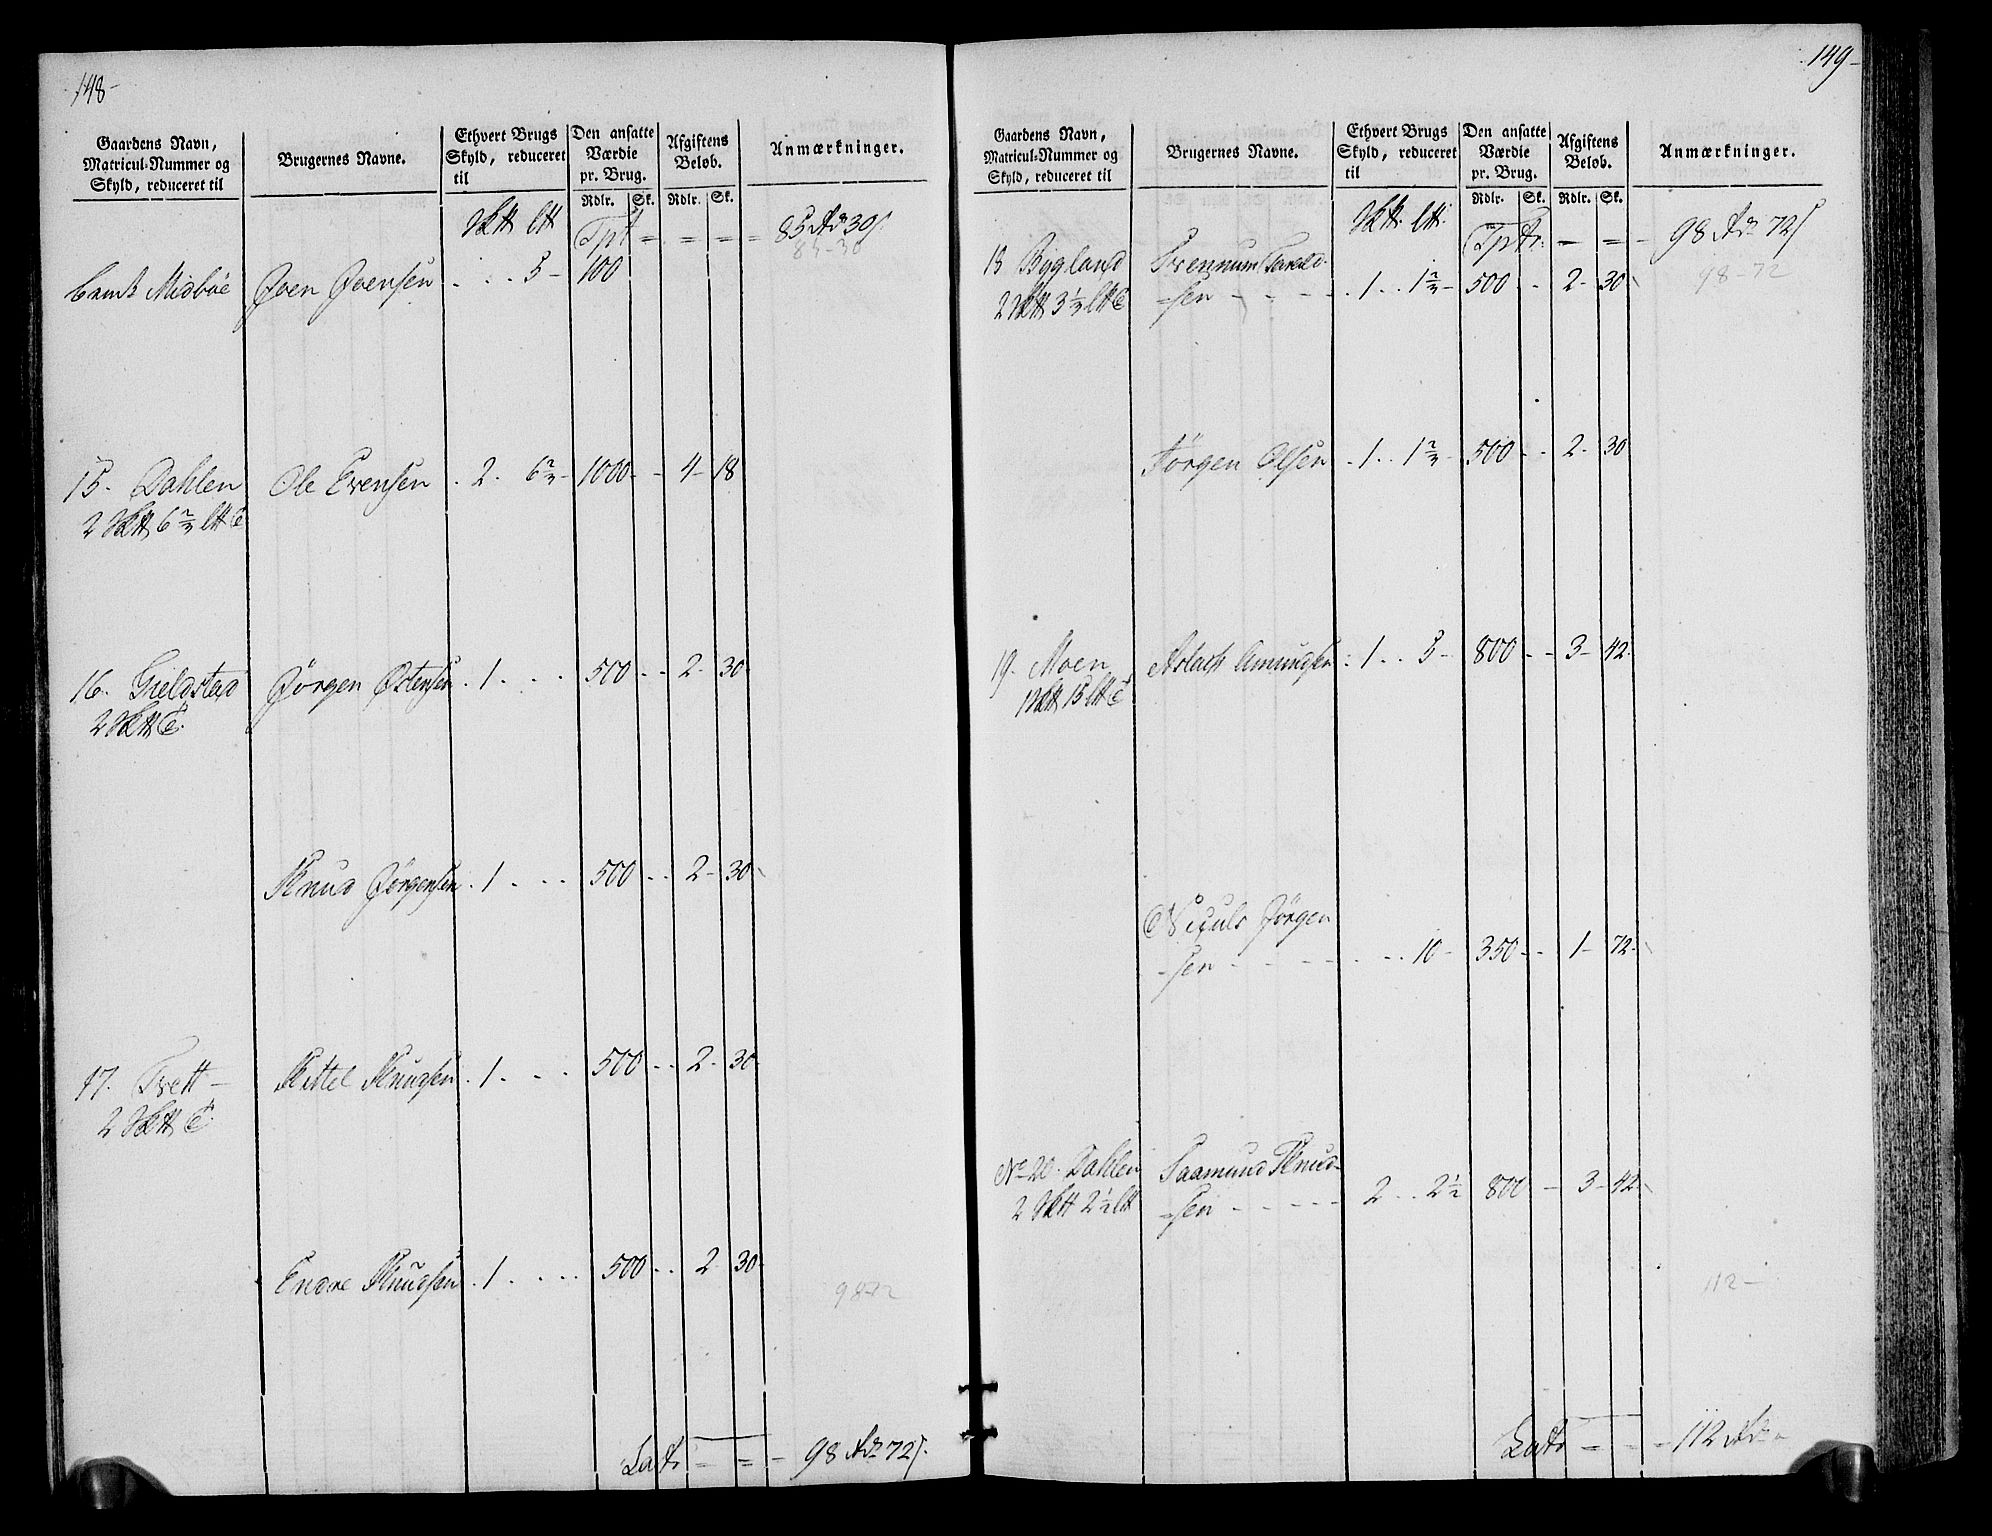 148-
Gaardens Navn,
Matricul-Nummer og
Skyld, reduceret til
Brugernes Navne.
Ethvert Brugs
Skyld, reduceret
til
Den ansatte
Værdie
pr. Brug.
Rdlr. Sk.
Afgiftens
Beløb.
Rdlr. Sk.
Anmærkninger.
Tpt = = = = 85 Rdr 30 s
85-30
Midbøe Joen Joensen . . . 5 - 100
15. Dahlen Ole Evensen . 2 . 6 2/3 - 1000 - - 4 - 18
2 6 2/3
16. Gieldstad Jørgen Ostensen . 1 . . . 500 . . 2 - 30
2
Knud Jørgensen . 1 . . . 500 . . 2 - 30
17. Tvett - Kittel Knudsen . 1 . . . 500 . . 2 - 30
2
Endre Knudsen . 1 . . . . 500 . . 2 - 30
98-72
Latr = = - 98 Rdr 72 s.
149-
Gaardens Navn,
Matricul-Nummer og
Skyld, reduceret til
Brugernes Navne.
Ethvert Brugs
Skyld, reduceret
til
Den ansatte
Værdie
pr. Brug.
Rdlr. Sk.
Afgiftens
Beløb.
Rdlr. Sk.
Anmærkninger.
Tptr. = = - 98 Rdr 72 s
98-72
Bygland
2 3 1/3 -sen - - - - . 1 . . 1 2/3 - 500 - - 2 - 30
Jørgen Olsen . 1 . . 1 2/3 - 500 - - 2 - 30
19. Moen Aslach Amundsen . 1 . . 5 - 800 - - 3 - 42
1 15
Jørgen
-sen - - - - . . 10 - 350 - - 1 - 72
No 20 Dahlen Saamund Knud-
2 2 1/2 -sen - - - - 2 . . 2 1/2 800 - 3 - 42
112 -
Latr = - - 112 Rdr